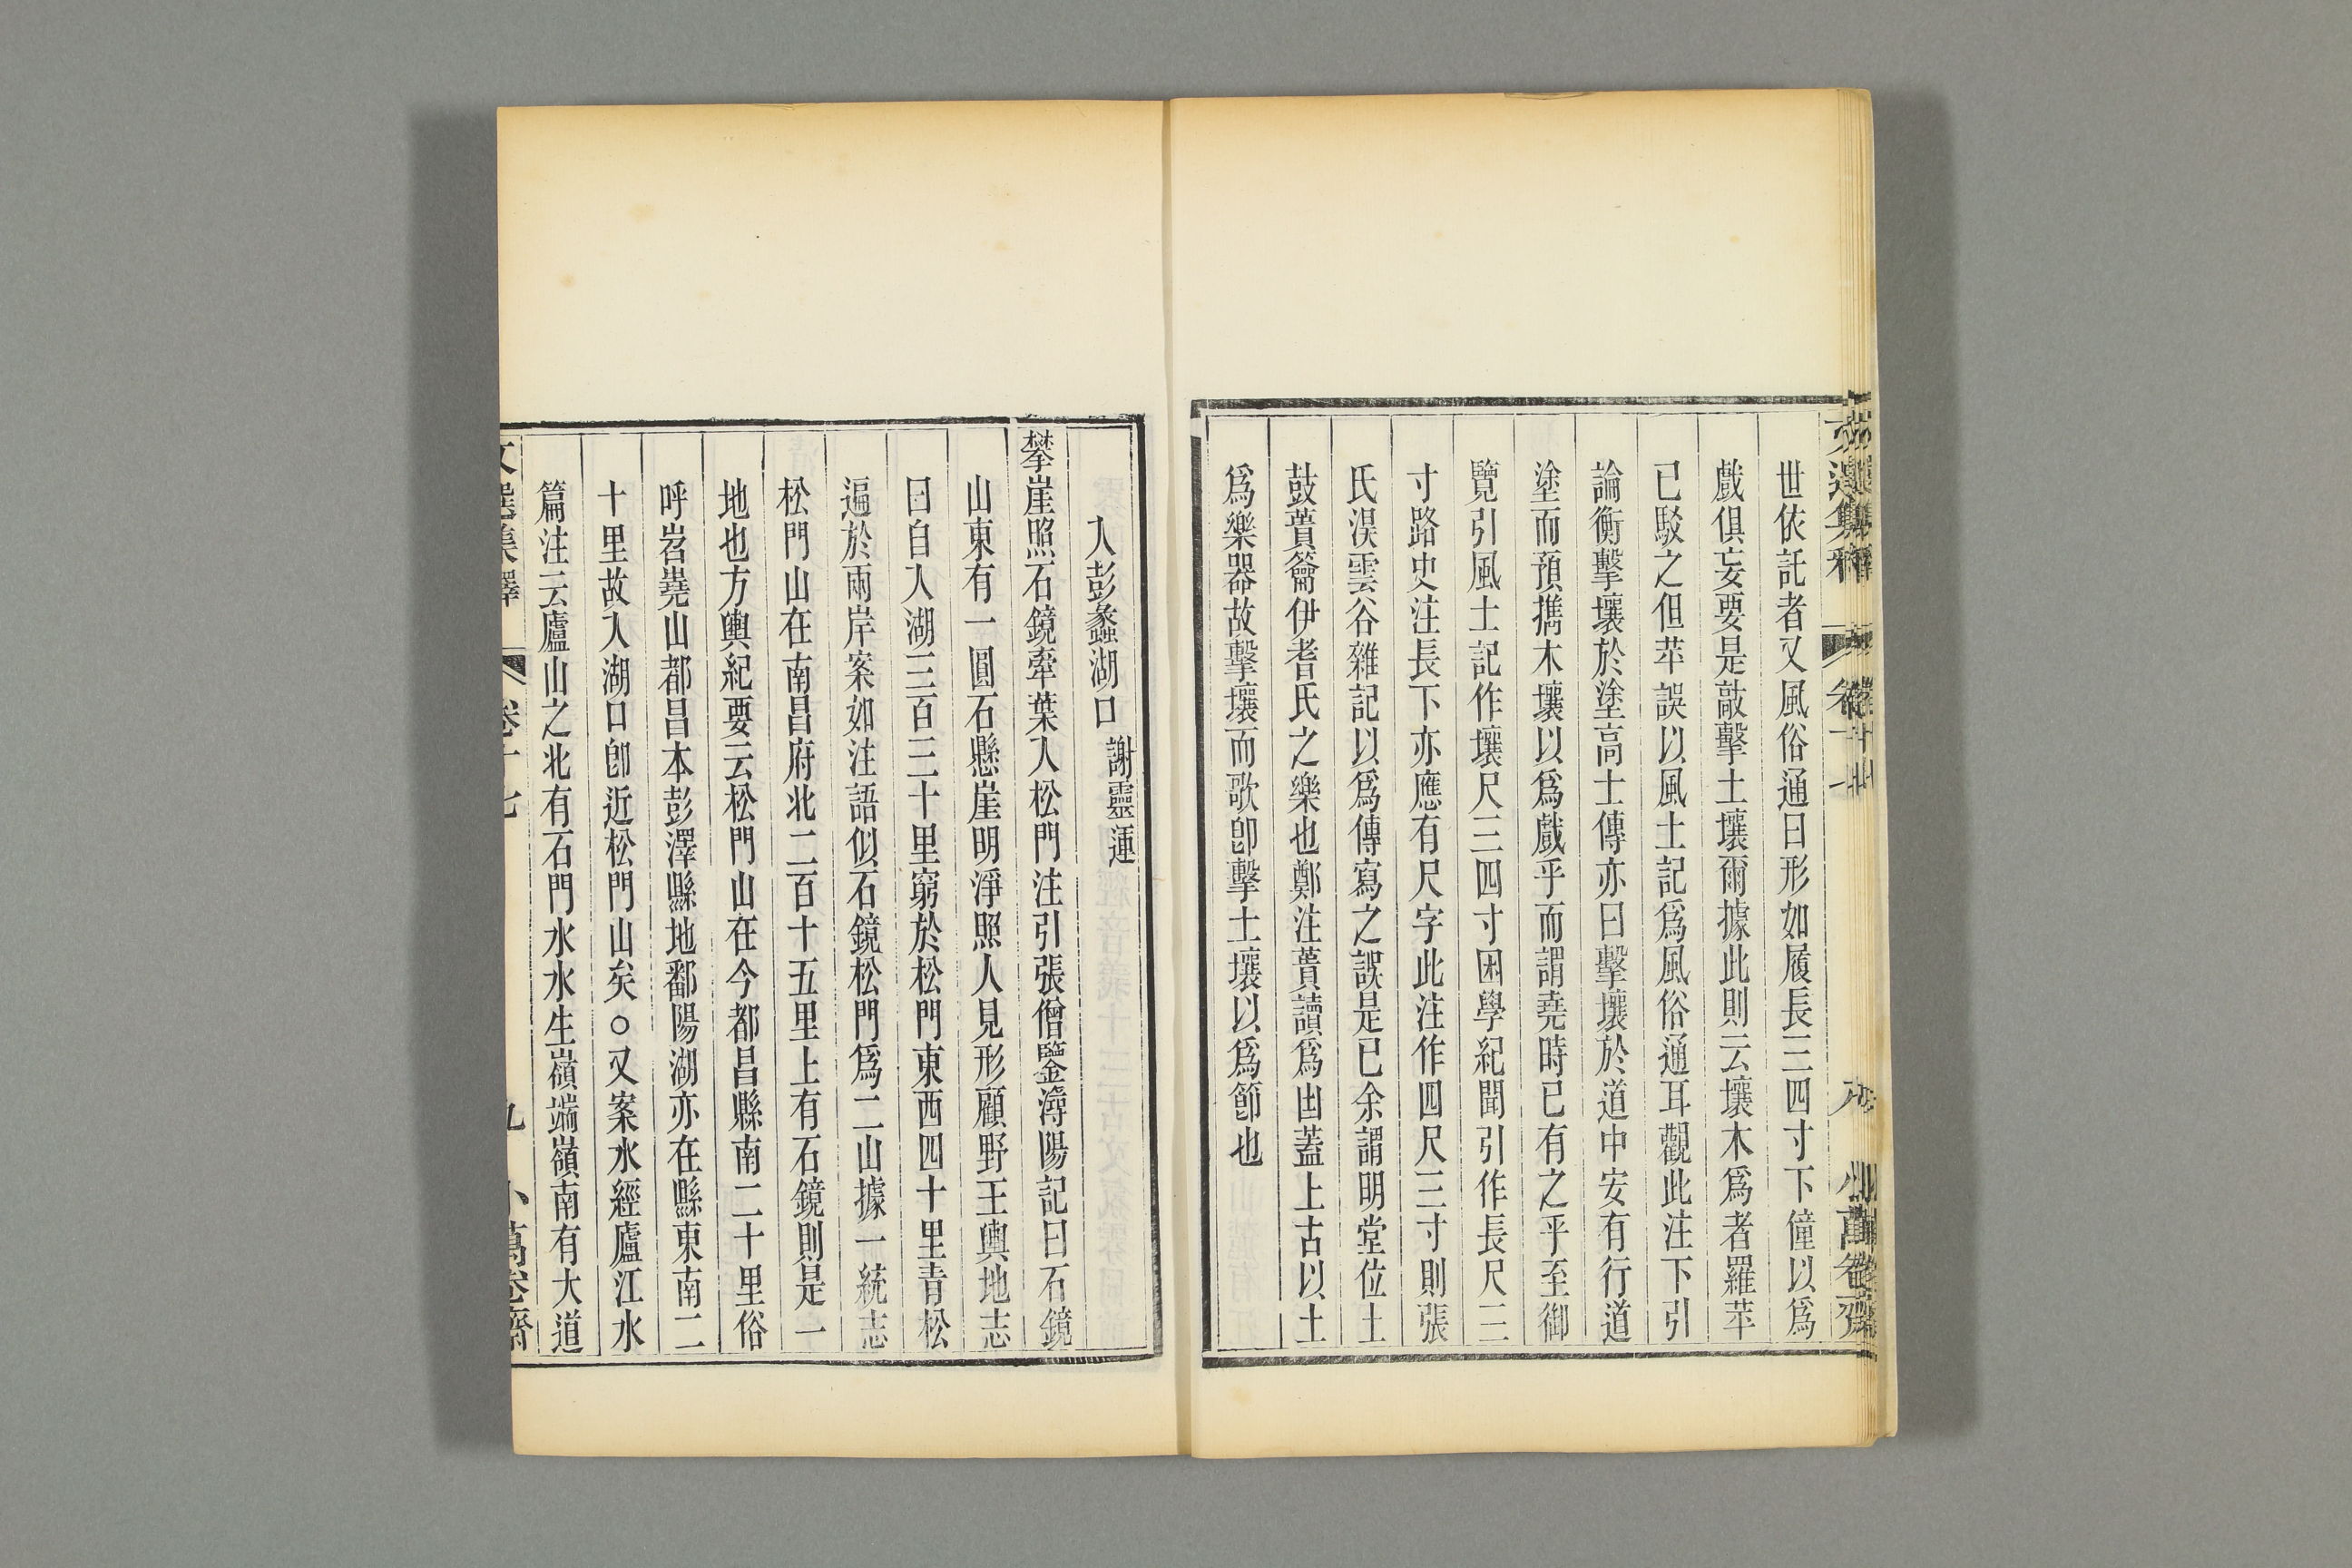 世依託者又風俗通曰形如履長三四寸下僮以爲
戲俱妄要是敲擊土壤爾據此則云壤木爲者羅苹
已駁之但苹誤以風土記爲風俗通耳觀此注下引
論衡擊壤於塗高士傳亦曰擊壤於道中安有行道
塗而預擕木壤以爲戲乎而謂堯時已有之乎至御
覽引風土記作壤尺三四寸困學紀聞引作長尺三
寸路史注長下亦應有尺字此注作四尺三寸則張
氏淏雲谷雜記以爲傳寫之誤是已余謂明堂位土
鼓蕢籥伊耆氏之樂也鄭注蕢讀爲凷蓋上古以土
爲樂器故擊壤而歌卽擊土壤以爲節也
入彭蠡湖口 謝靈運
攀崖照石鏡牽葉入松門注引張僧鑒潯陽記曰石鏡
山東有一圓石懸崖明淨照人見形顧野王輿地志
曰自入湖三百三十里窮於松門東西四十里青松
遍於兩岸案如注語似石鏡松門爲二山據一統志
松門山在南昌府北二百十五里上有石鏡則是一
地也方輿紀要云松門山在今都昌縣南二十里俗
呼岧嶤山都昌本彭澤縣地鄱陽湖亦在縣東南二
十里故入湖口卽近松門山矣○又案水經廬江水
篇注云廬山之北有石門水水生嶺端嶺南有大道
文選集釋 卷十七 九 小萬卷齋